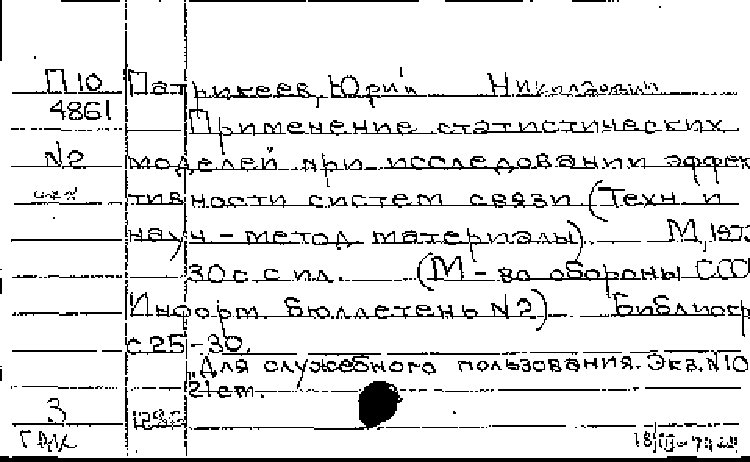 П10 Патрикеев, Юрий Николаевич
4861
Применение статистических
N2 моделей при исследовании эффек
тивности систем связи. (Техн. и
науч. - метод. материалы). М, 197
30 с. с ил. (М - во обороны ССС
Информ. бюллетень N2). Библиогр
с. 25-30.
Для служебного пользования. Экз. N10
21 см.
3